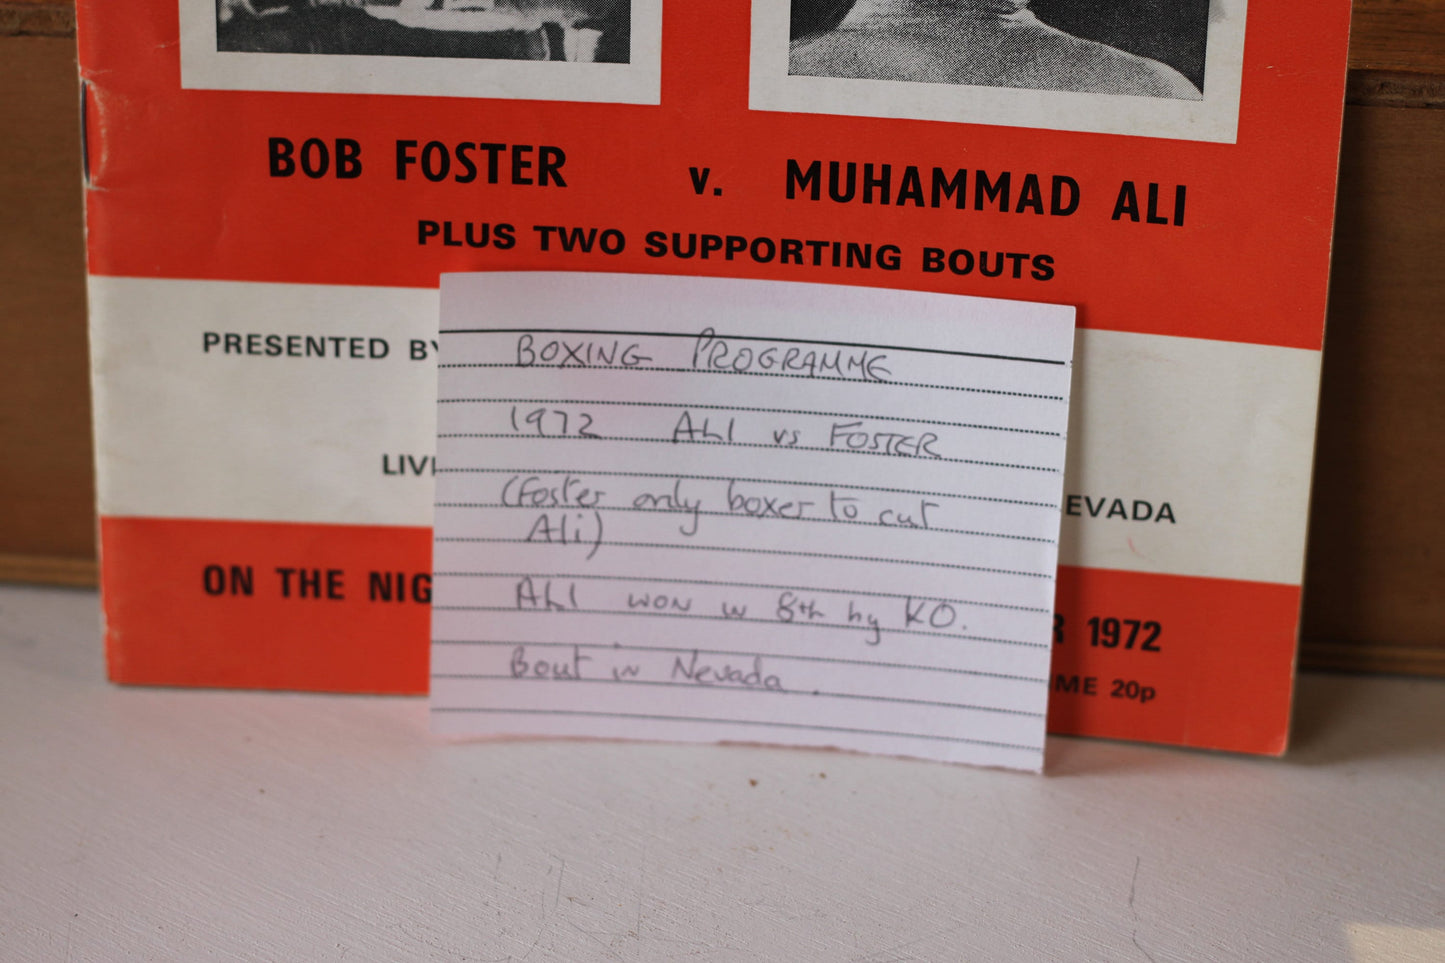 BOB FOSTER v. MUHAMMAD ALI
PLUS TWO SUPPORTING BOUTS
PRESENTED BY
LIV
EVADA
ON THE NIG
R 1972
ME 20p
BOXING PROGRAMME
1972 ALI vs FOSTER
(Foster only boxer to cut
Ali)
ALI WON IN 8th by KO.
Bout in Nevada.